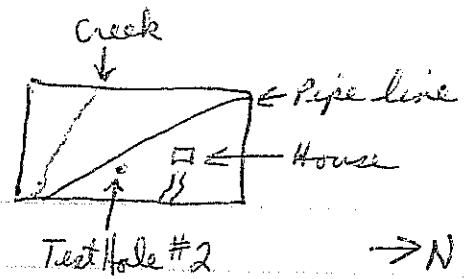 Creek
Pipe line
House
Test Hole #2
N